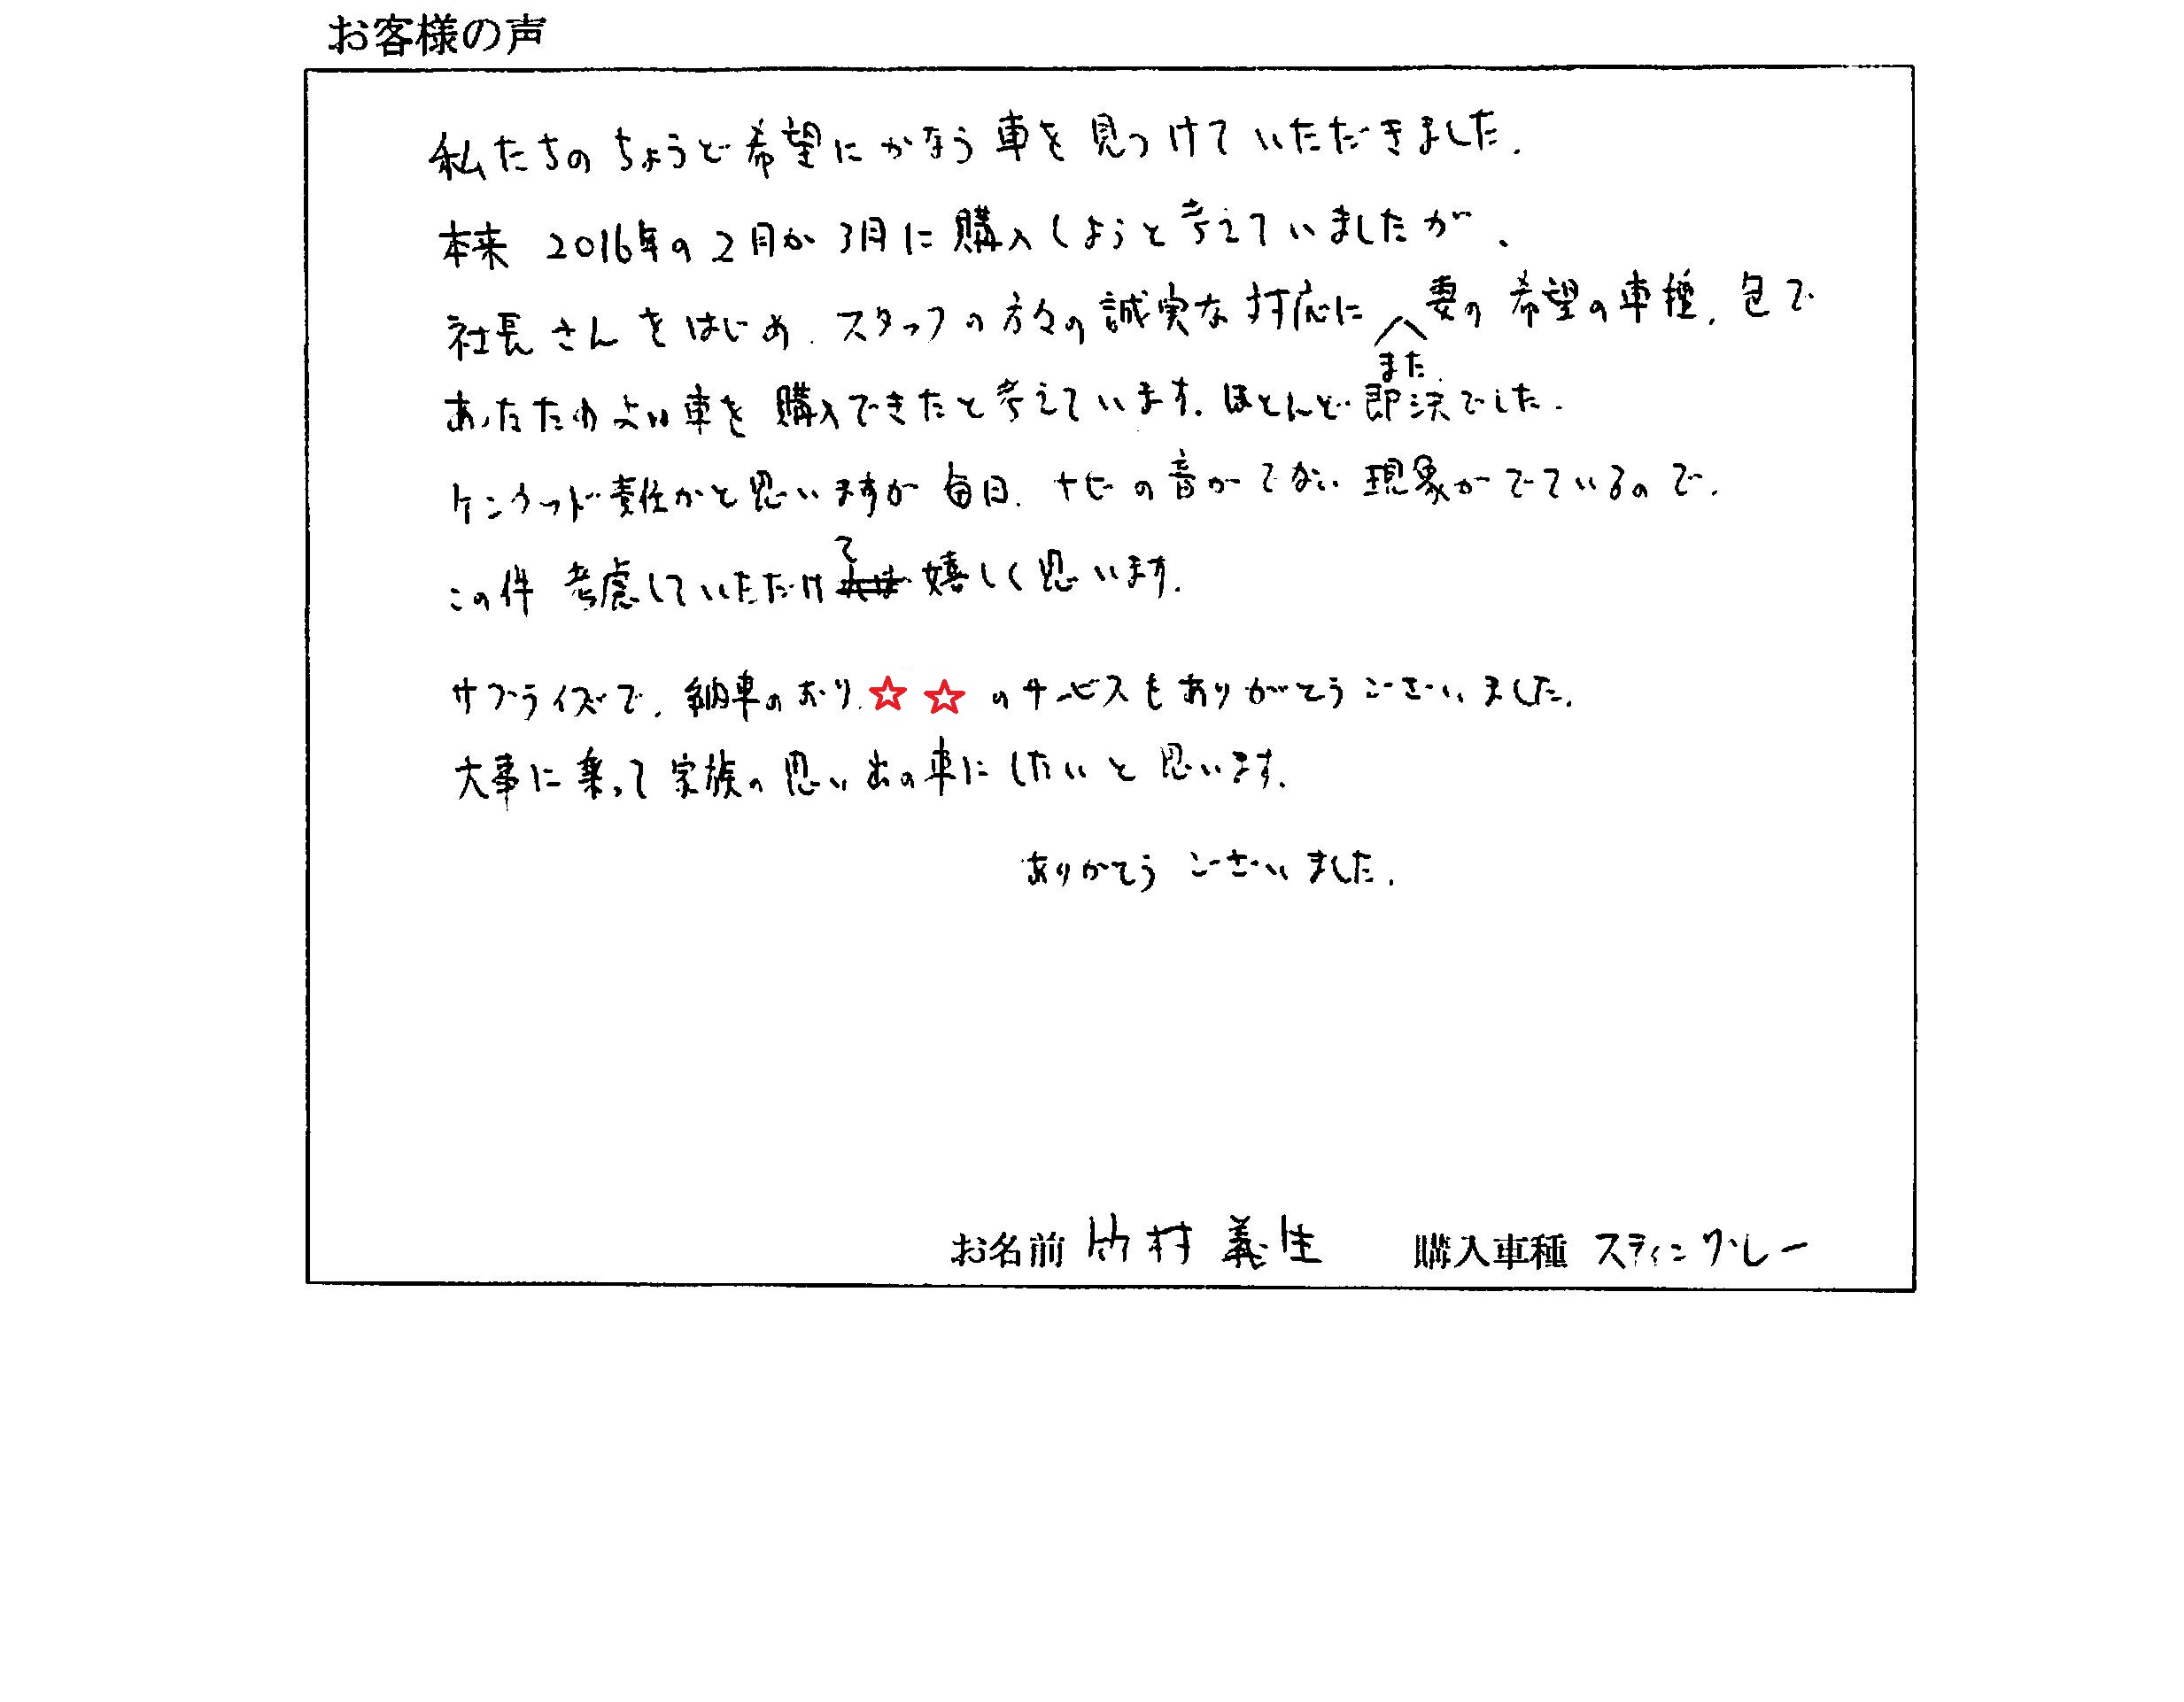 お客様の声
私たちのちょうど希望にかなう車を見つけていただきました.
本来 2016年の2月か3月に購入しようと考えていましたが、
社長さんをはじめ、スタッフの方々の誠実な対応に また、妻の希望の車種、色で
あったためよい車を購入できたと考えています. ほとんど即決でした.
ケンウッド責任かと思いますが毎日、ナビの音がでない現象がでているので、
この件 考慮していただけて嬉しく思います.
サプライズで、納車のおり、☆☆のサービスもありがとうございました.
大事に乗って家族の思い出の車にしたいと思います.
ありがとうございました.
お名前 竹村 義生 購入車種 スティングレー